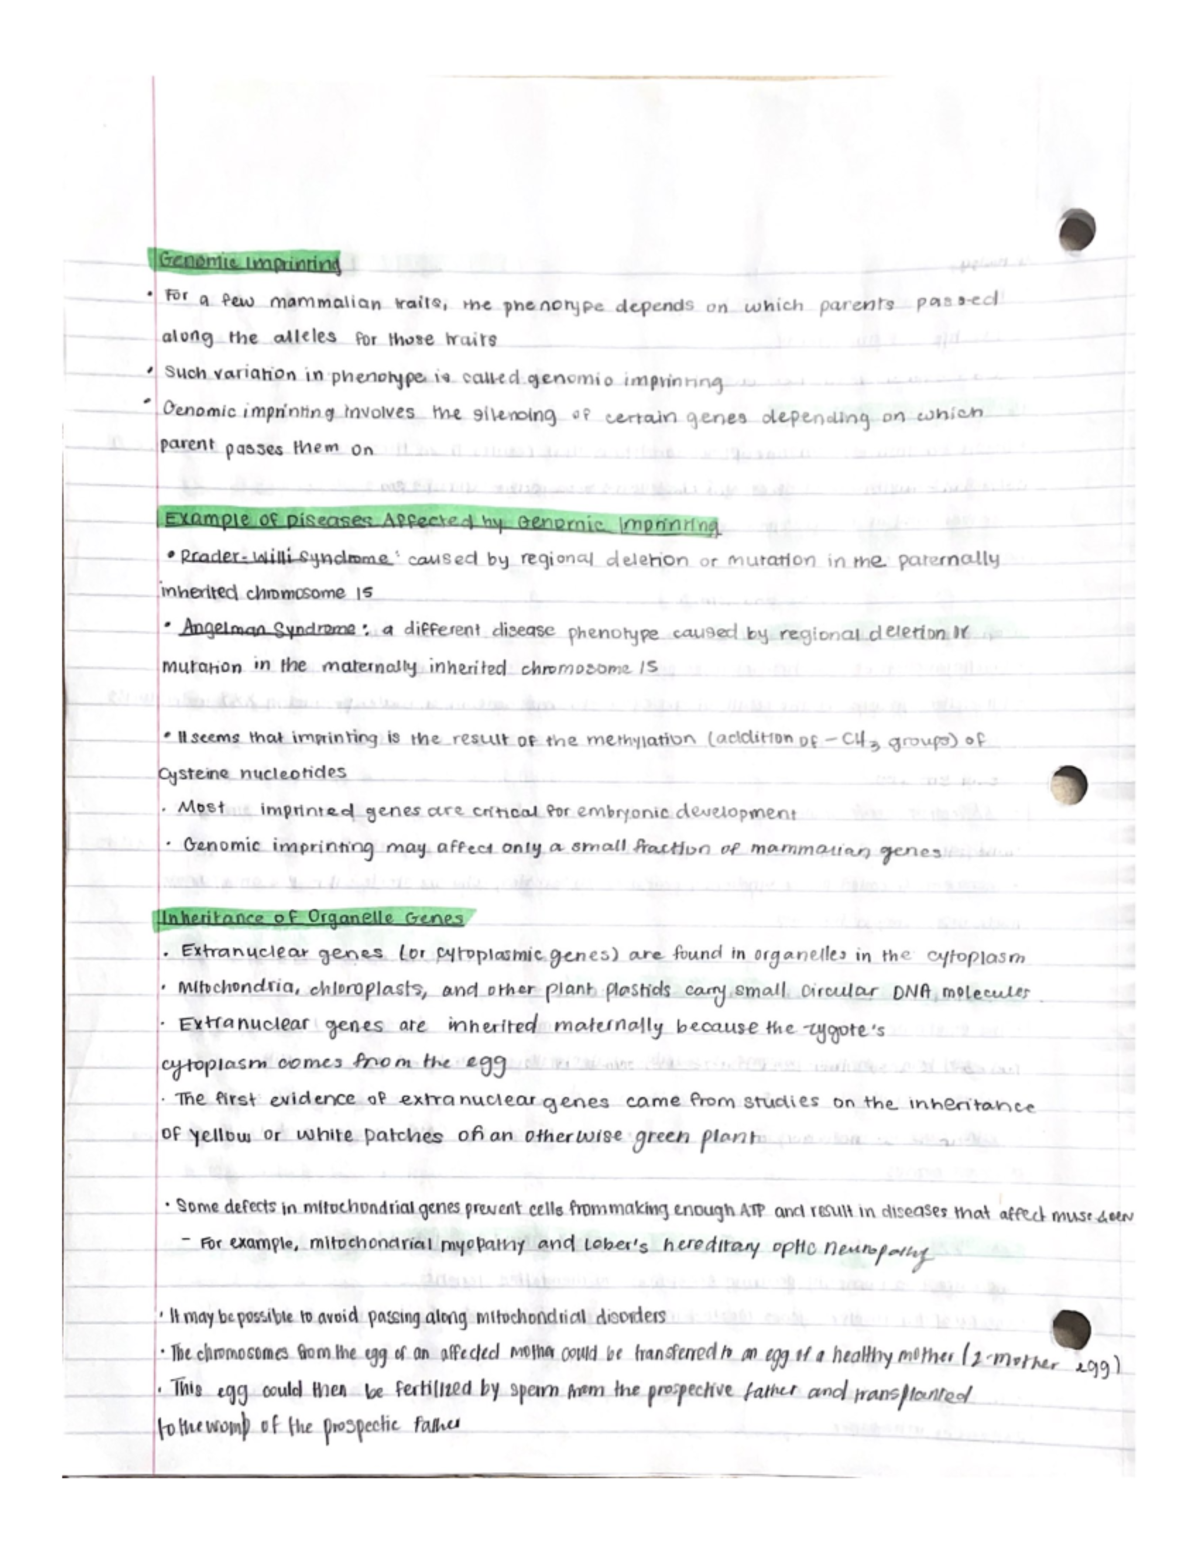 Genomic Imprinting
• For a few mammalian traits, the phenotype depends on which parents passed
along the alleles for those traits
• Such variation in phenotype is called genomic imprinting
• Genomic imprinting involves the silencing of certain genes depending on which
parent passes them on
Example of Diseases Affected by Genomic Imprinting
• Prader-Willi Syndrome: caused by regional deletion or mutation in the paternally
inherited chromosome 15
• Angelman Syndrome: a different disease phenotype caused by regional deletion
mutation in the maternally inherited chromosome 15
• It seems that imprinting is the result of the methylation (addition of -CH3 groups) of
Cysteine nucleotides
· Most imprinted genes are critical for embryonic development
· Genomic imprinting may affect only a small fraction of mammalian genes
Inheritance of Organelle Genes
· Extranuclear genes (or cytoplasmic genes) are found in organelles in the cytoplasm
· Mitochondria, chloroplasts, and other plant plastids carry small circular DNA molecules
· Extranuclear genes are inherited maternally because the zygote's
cytoplasm comes from the egg
· The first evidence of extranuclear genes came from studies on the inheritance
of yellow or white patches on an otherwise green plant
· Some defects in mitochondrial genes prevent cells from making enough ATP and result in diseases that affect
- For example, mitochondrial myopathy and Lober's hereditary optic neuropathy
· It may be possible to avoid passing along mitochondrial disorders
· The chromosomes from the egg of an affected mother could be transferred to an egg of a healthy mother (2-mother egg)
· This egg could then be fertilized by sperm from the prospective father and transplanted
to the womb of the prospectic father